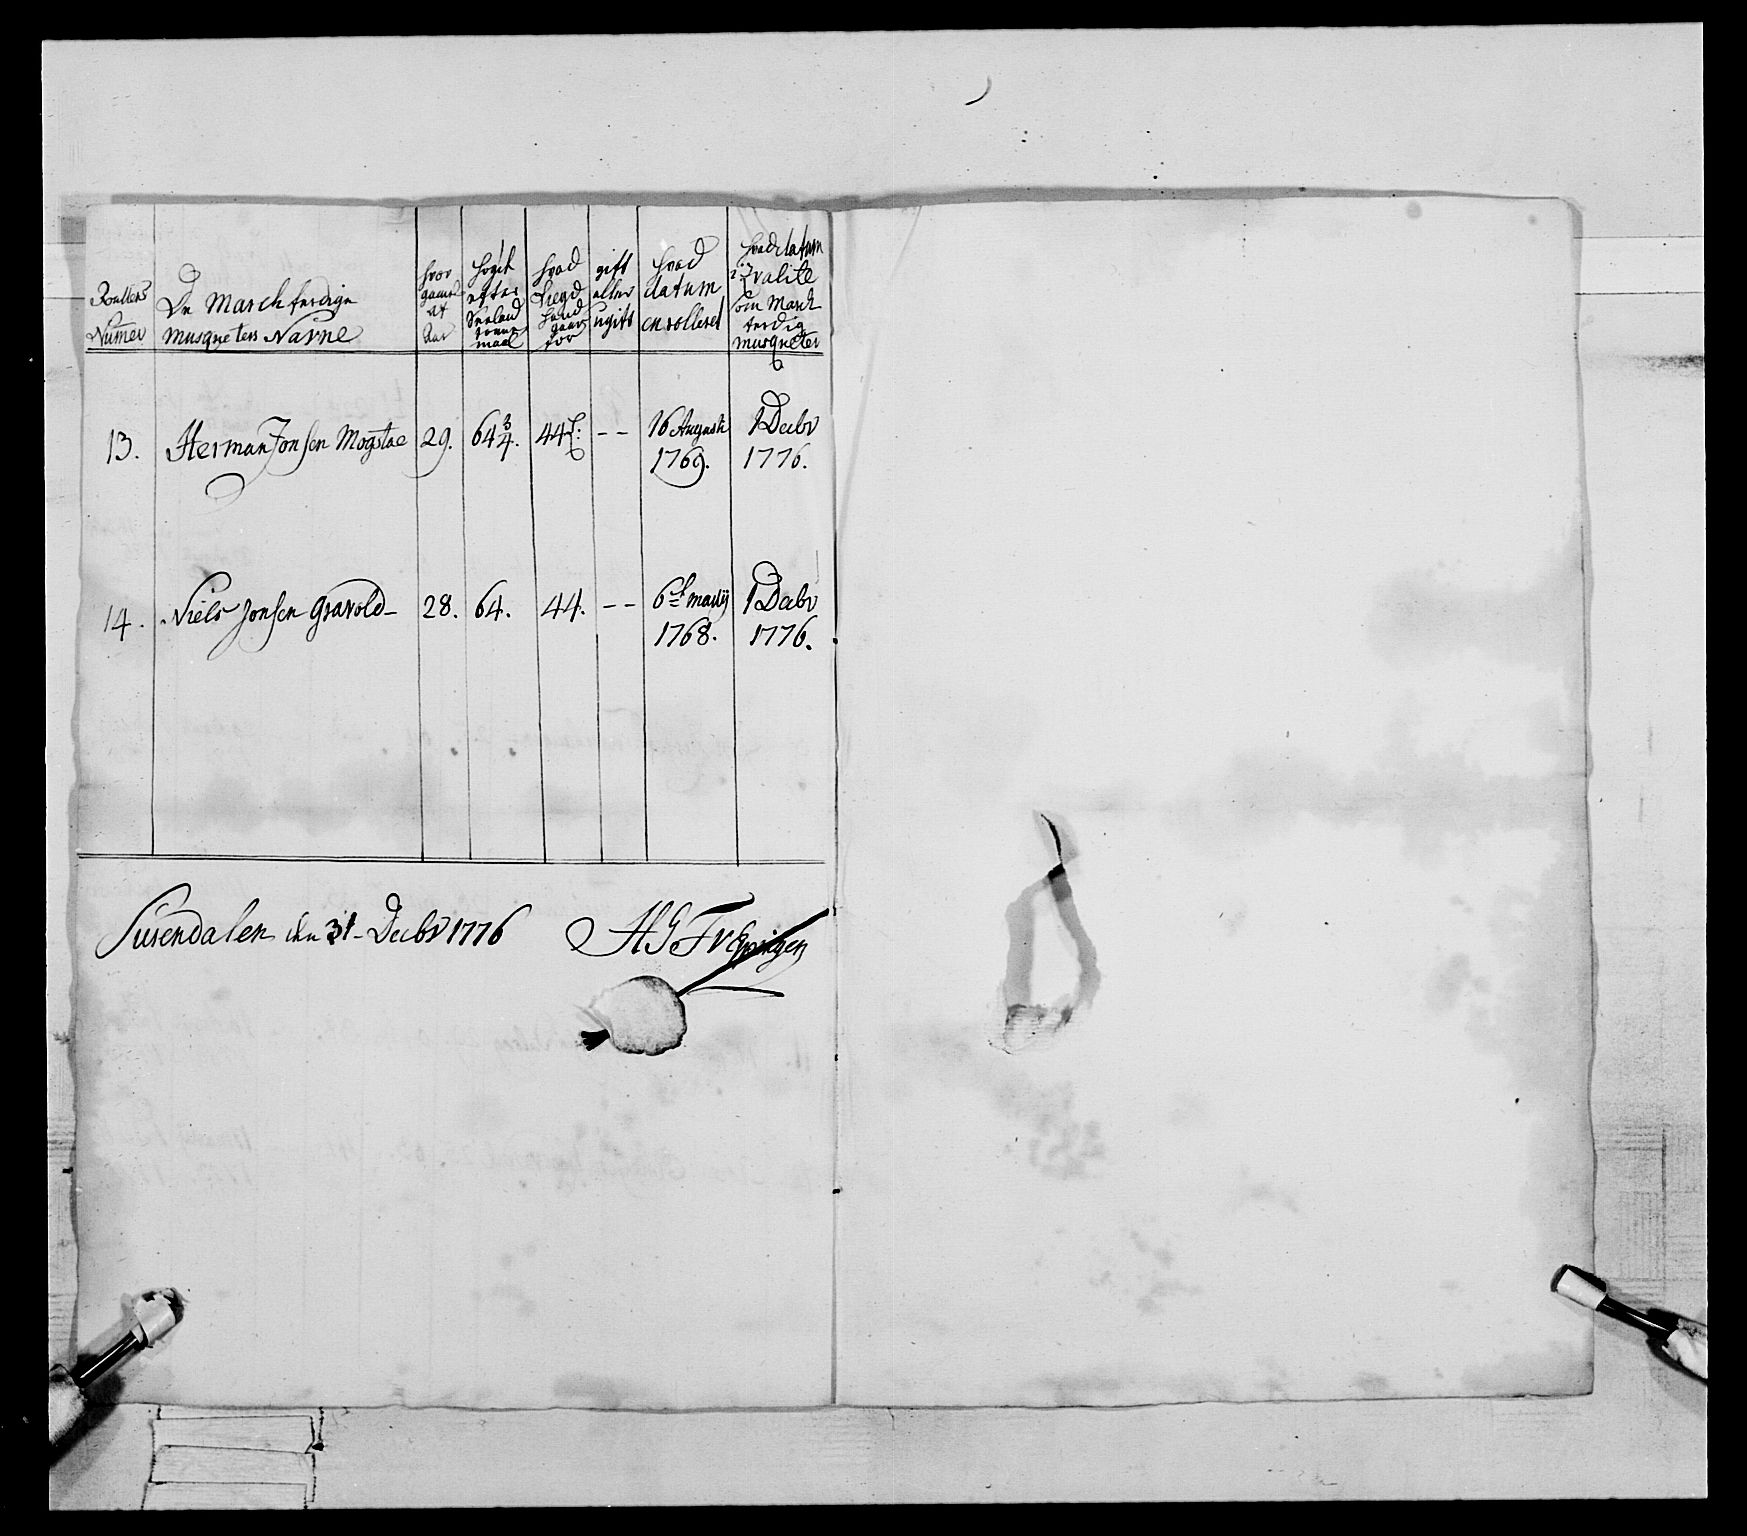 Roullens Numer
De March ferdige musqueters Navne
hvor gamel at Aar
høyde efter Seeland tomme maal
hvad Liegd hand gaar for
gift eller ugift
hvad datum enrolleret
hvad datum i qvalite som March ferdig musqueter
13. Herman Jonsen Mogstae 29. 64 3/4. 44 -- 16 Augusti 1769. 1 Decbr 1776.
14. Niels Jonsen Gravold- 28. 64. 44. -- 6te martij 1768. 1 Decbr 1776.
Surendalen den 31- Decbr 1776